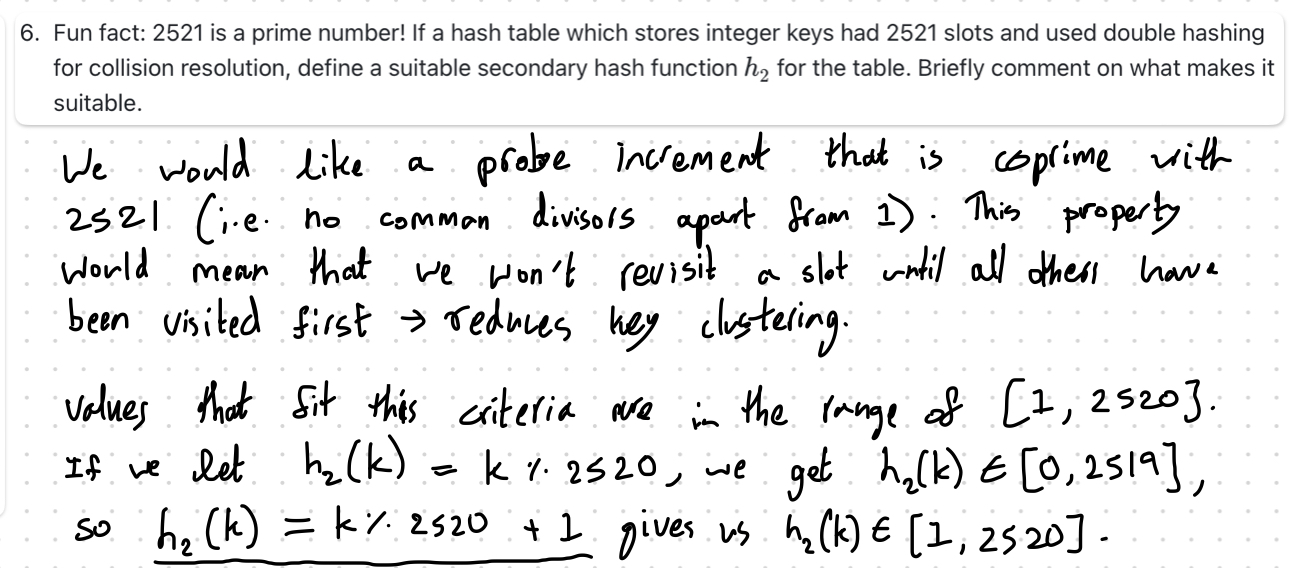 6. Fun fact: 2521 is a prime number! If a hash table which stores integer keys had 2521 slots and used double hashing
for collision resolution, define a suitable secondary hash function h₂ for the table. Briefly comment on what makes it
suitable.
We would like a probe increment that is coprime with
2521 (i.e. no common divisors apart from 1). This property
would mean that we won't revisit a slot until all others have
been visited first → reduces key clustering.
Values that fit this criteria are in the range of [1, 2520].
If we let h₂(k) = k % 2520, we get h₂(k) ∈ [0, 2519],
so h₂(k) = k % 2520 + 1 gives us h₂(k) ∈ [1, 2520].